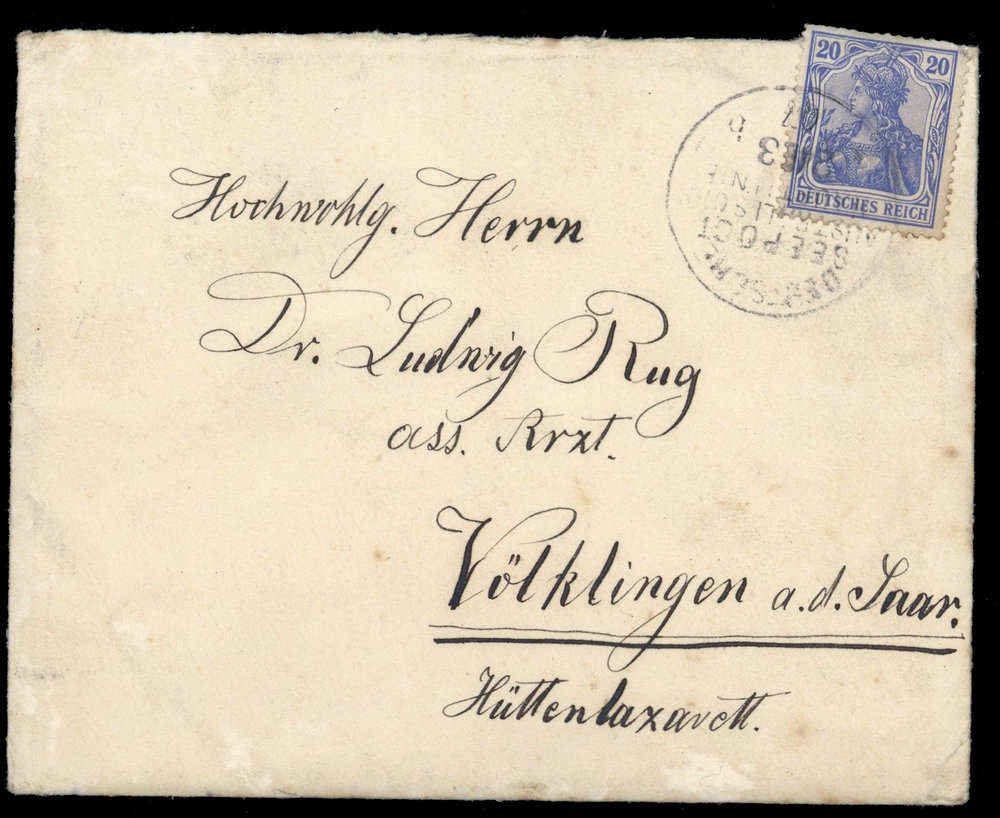 20 20
DEUTSCHES REICH
DEUTSCHE
SEEPOST
AUSTRAL
Hochwohlg. Herrn
Dr. Ludwig Rug
ass. Arzt.
Völklingen a.d. Saar.
Hüttenlazarett.